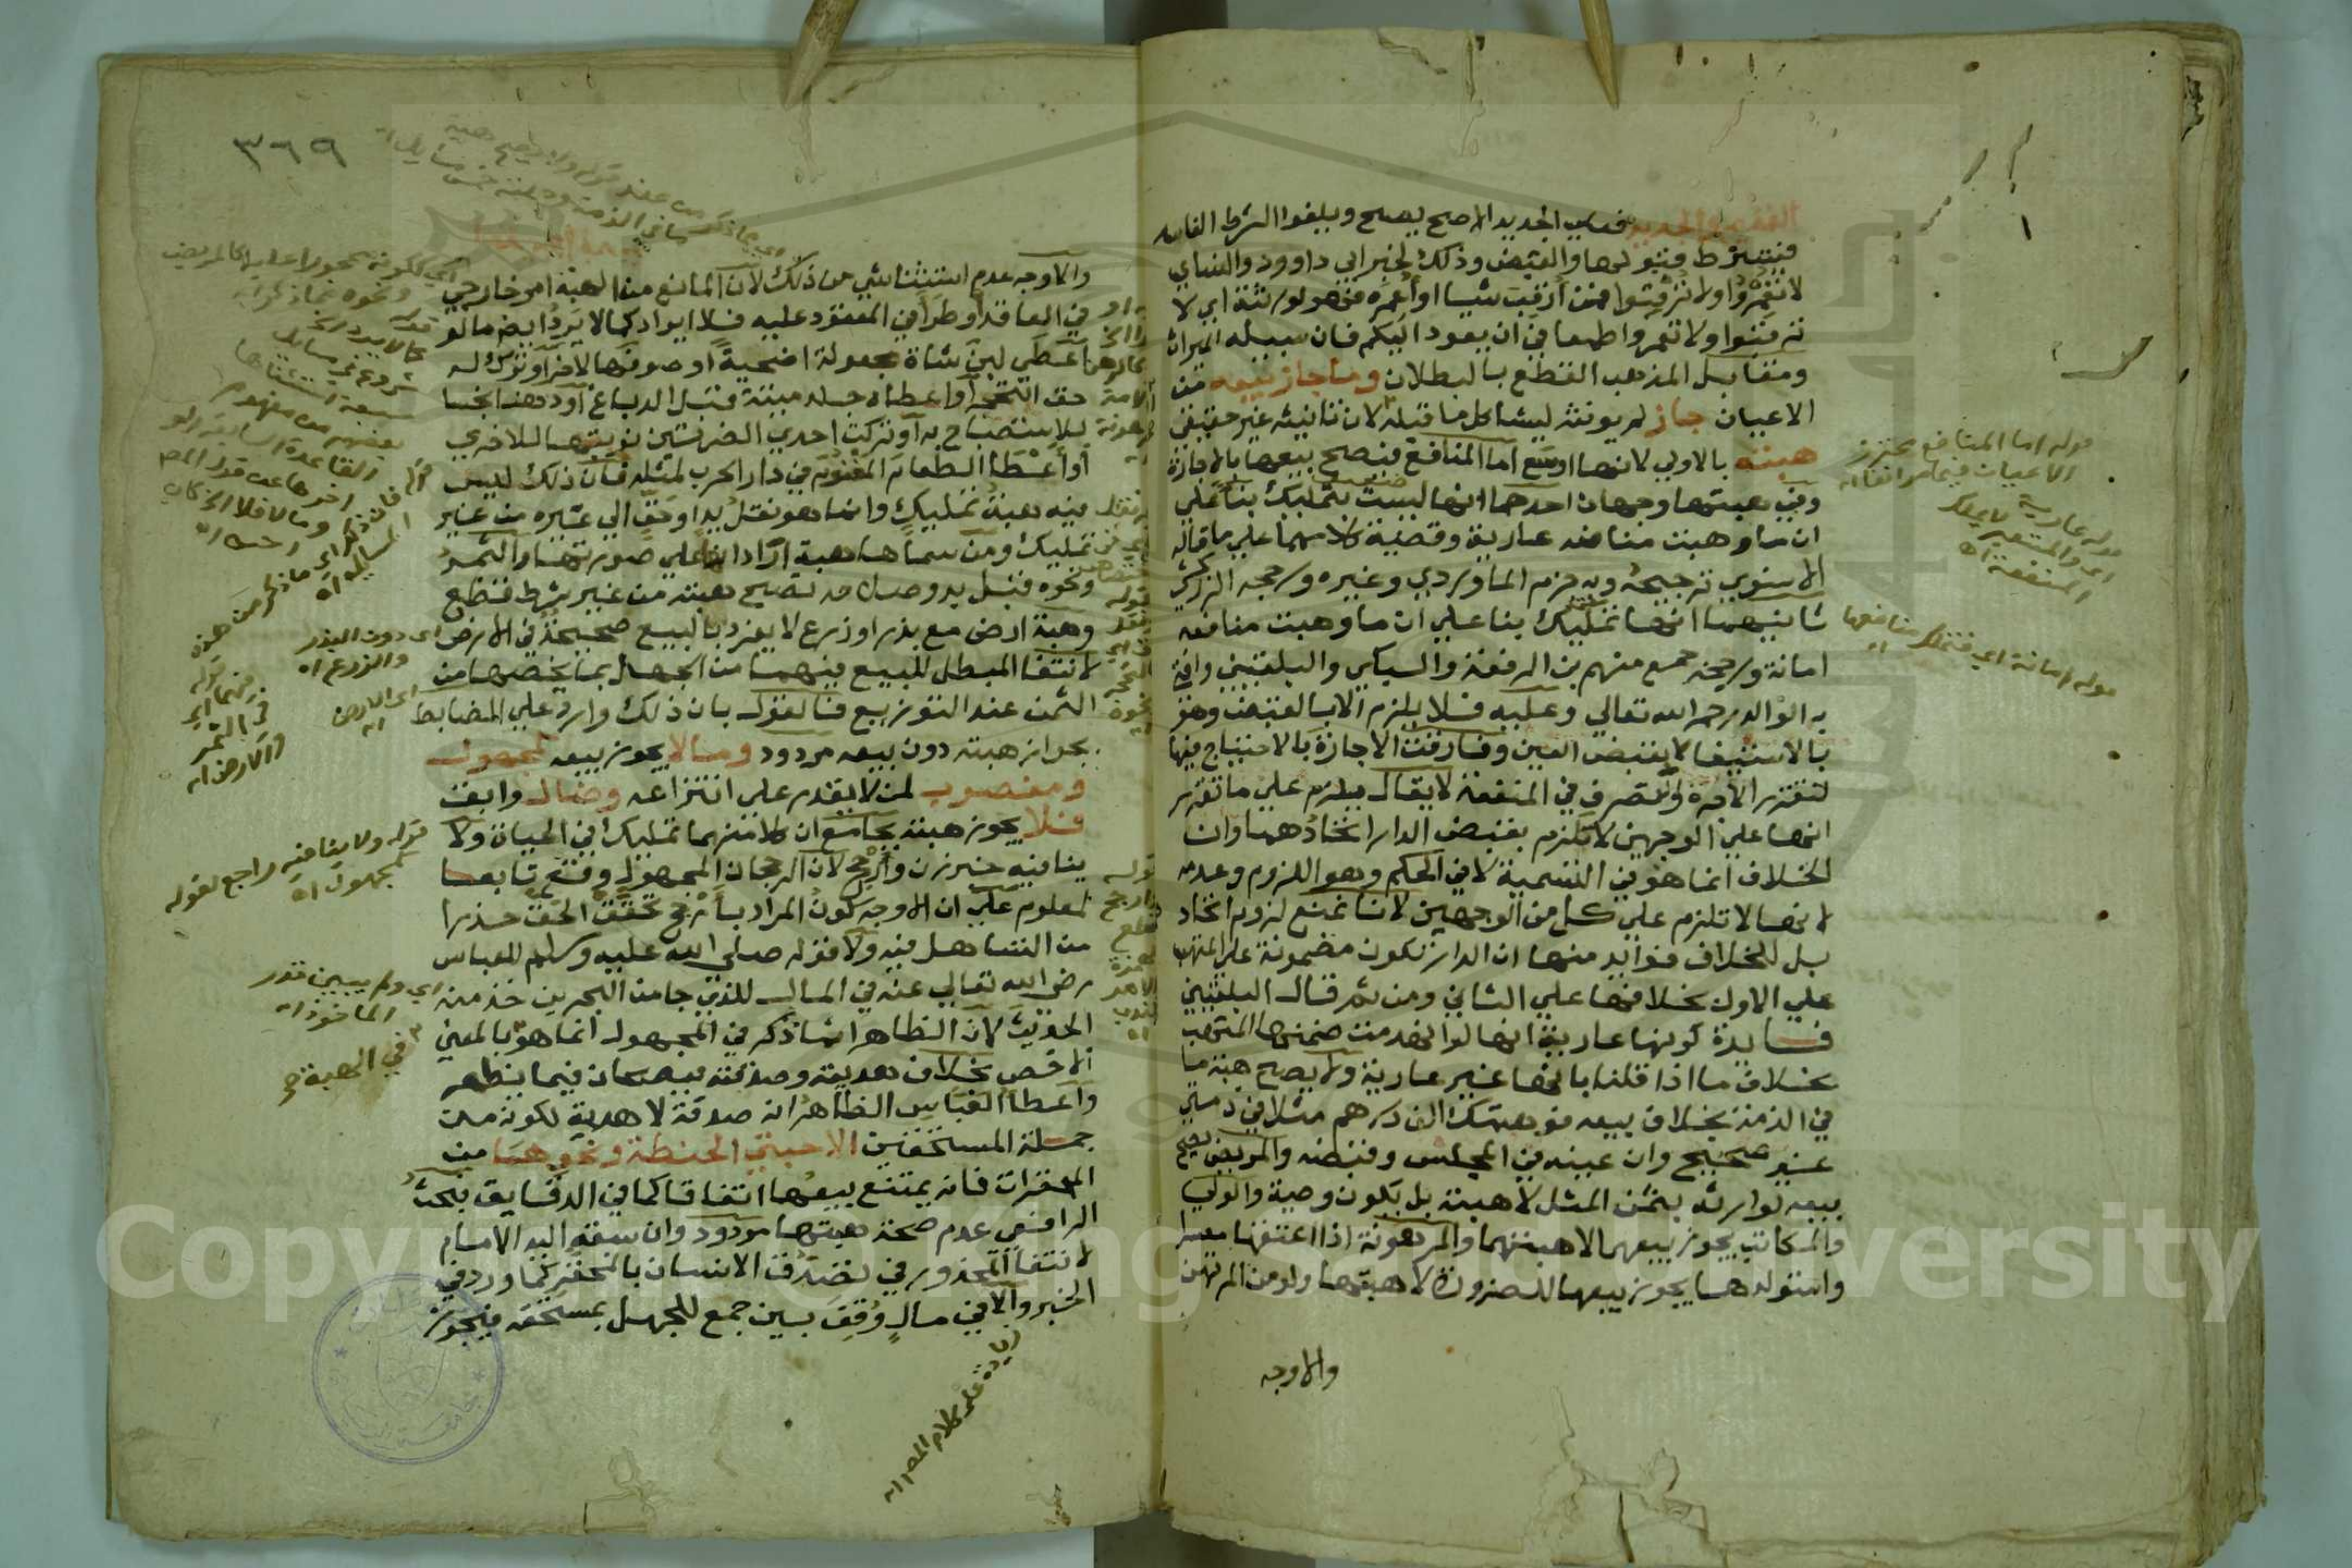 فعلى الجديد الاصح يصح ويلغوا الشرط الفاسد
فيشترط قبولها والقبض وذلك لخبر ابي داوود والنساي
لا تعمروا ولا ترقبوا فمن ارقب شيا او اعمره فهو لورثته اي لا
ترقبوا ولا تعمروا طمعا في ان يعود اليكم فان سبيله الميراث
ومقابل المذهب القطع بالبطلان وما جاز بيعه من
الاعيان جاز لم يونث ليشاكل ما قبله لان تانيثه غير حقيقي
هبته بالاولى لانها اوسع اما المنافع فيصح بيعها بالاجارة
وفي هبتها وجهان احدهما انها ليست بتمليك بنا على
ان ما وهبت منافعه عارية وقضية كلامهما على ما قاله
الاسنوي ترجيحه وبه جزم الماوردي وغيره ورجحه الزركشي
ثانيهما انها تمليك بنا على ان ما وهبت منافعه
امانة ورجحه جمع منهم بن الرفعة والسبكي والبلقيني وافتى
به الوالد رحمه الله تعالى وعليه فلا يلزم الا بالقبض وهو
بالاستيفا لا بقبض العين وفارقت الاجارة بالاحتياج فيها
لتقرر الاجرة والتصرف في المنفعة لا يقال يلزم على ما تقرر
انها على الوجهين لا تلزم بقبض الدار اتحادهما وان
الخلاف انما هو في التسمية لا في الحكم وهو اللزوم وعدمه
لانها لا تلزم على كل من الوجهين لانا نمنع لزوم اتحاد
بل للخلاف فوايد منها ان الدار تكون مضمونة على المتهب
على الاول بخلافها على الثاني ومن ثم قال البلقيني
فايدة كونها عارية انها لو انهدمت ضمنها المتهب
بخلاف ما اذا قلنا بانها غير عارية ولا يصح هبة ما
في الذمة بخلاف بيعه فوهبتك الف درهم مثلا في ذمتي
غير صحيح وان عينه في المجلس وقبضه والمريض يصح
بيعه لوارثه بثمن المثل لا هبته بل تكون وصية والولي
والمكاتب يجوز بيعهما لا هبتهما والمرهونة اذا اعتقها معسرا
واستولدها يجوز بيعها للضرورة لا هبتها ولو من المرتهن
والاوجه
قوله اما المنافع محترز
الاعيان فيما مر انفا اه
قوله عارية
اي والمستعير لا يملك
المنفعة اه
قوله امانة اي فتملك منافعها
اه
٣٦٩
والاوجه عدم استثنا شي من ذلك لان المانع من الهبة امر خارجي
في العاقد او طرا في المعقود عليه فلا ايراد كما لا يرد ايضا ما لو
اعطي لبن شاة مجعولة اضحية او صوفها لاخر او ترك له
حق التحجر او اعطاه جلد ميتة قبل الدباغ او دهنا نجسا
للاستصباح به او تركت احدي الضرتين نوبتها للاخري
او اعطا الطعام المغنوم في دار الحرب لمثله فان ذلك ليس
فيه هبة تمليك وانما هو نقل يد او حق الي غيره من غير
تمليك ومن سماها هبة اراد انها على صورتها والثمر
ونحوه قبل بدو صلاحه تصح هبته من غير شرط قطع
وهبة ارض مع بذر او زرع لا يفرد بالبيع صحيحة في الارض
لانتفا المبطل للبيع فيهما من الجهل بما يخصها من
الثمن عند التوزيع فالقول بان ذلك وارد علي الضابط
بجواز هبته دون بيعه مردود وما لا يجوز بيعه كمجهول
ومغصوب لمن لا يقدر على انتزاعه وضال وابق
فلا يجوز هبته بجامع ان كلا منهما تمليك في الحياة ولا
ينافيه خبر زن وارجح لان الرجحان المجهول وقع تابعا
لمعلوم على ان الاوجه كون المراد بارجح تحقق الحق حذرا
من التساهل فيه ولا قوله صلى الله عليه وسلم للعباس
رضي الله تعالى عنه في المال الذي جا من البحرين خذ منه
الحديث لان الظاهر انما ذكر في المجهول انما هو بالمعنى
الاخص بخلاف هديته وصدقته فيصحان فيما يظهر
واعطا العباس الظاهر انه صدقة لا هدية لكونه من
جملة المستحقين الا حبتي الحنطة ونحوهما من
المحقرات فانه يمتنع بيعها اتفاقا كما في الدقايق فبحث
الرافعي عدم صحة هبتها مردود وان سبقه اليه الامام
لانتفا المحذور في تصدق الانسان بالمحقر كما ورد في
الخبر والا في مال وقف بين جمع للجهل بمستحقه فيجوز
قوله ولا ينافيه راجع لقوله
كمجهول اه
اي ولم يبين قدر
الماخوذ اه
في الهبة
اي دون البذر
والزرع اه
اي الارض
اه
زيادة على كلام المص اه
Copyright © King Saud University